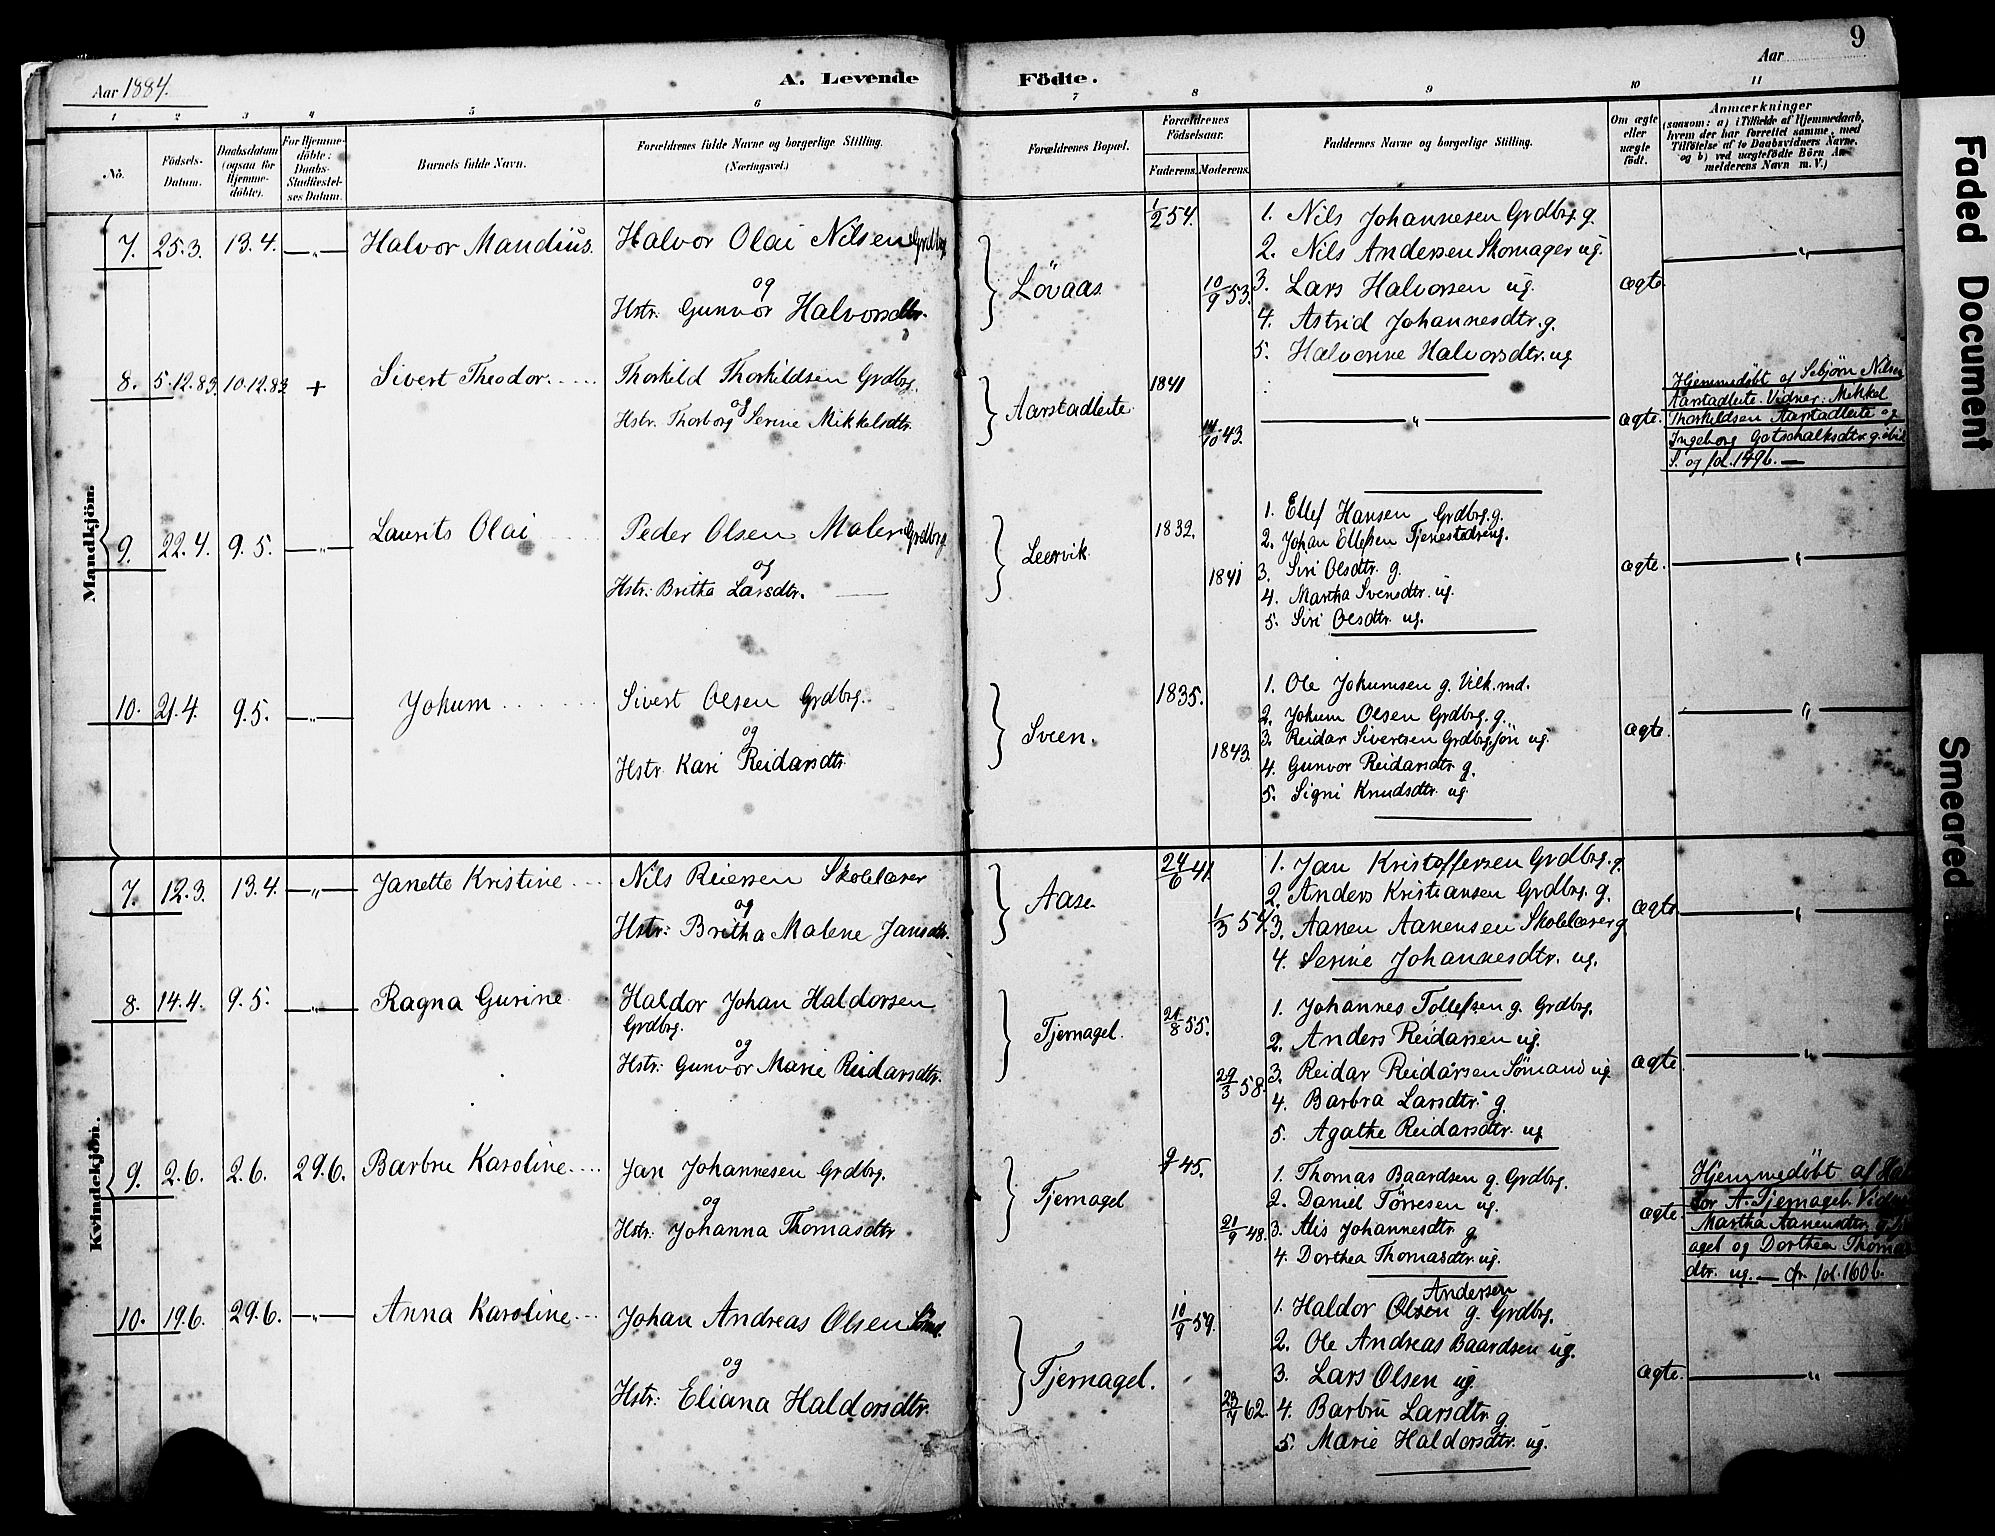 Aar 1884.
A. Levende
Födte.
Aar
9
1
2
3
4
5
6
7
8
9
10
11
No.
Födsels-
Datum.
Daabsdatum
(ogsaa for
Hjemme-
döbte).
For Hjemme-
döbte:
Daabs-
Stadfæstel-
ses Datum.
Barnets fulde Navn.
Forældrenes fulde Navne og borgerlige Stilling.
(Næringsvei.)
Forældrenes Bopæl.
Forældrenes
Födselsaar.
Faderens.
Moderens.
Faddernes Navne og borgerlige Stilling.
Om ægte
eller
uægte
födt.
Anmærkninger
(saasom: a) i Tilfælde af Hjemmedaab,
hvem der har forrettet samme, med
Tilföielse af to Daabsvidners Navne.
og b) ved uægtefödte Börn An-
melderens Navn m. V.)
Mandkjön.
7. 25.3. 13.4. —„— Halvor Mandius. Halvor Olai Nilsen Grdbrg.
og
Hstr: Gunvor Halvorsdtr.
Løvaas
1/2 54.
10/9 53.
1. Nils Johannesen Grdbrg. g.
2. Nils Andersen Skomager ug.
3. Lars Halvorsen ug.
4. Astrid Johannesdtr. g.
5. Halvorine Halvorsdtr. ug
ægte.
8. 5.12.83. 10.12.83 + Sivert Theodor. Thorkild Thorkildsen Grdbrg.
og
Hstr: Thorborg Serine Mikkelsdtr.
Aarstadleite
1841
10 43.
ægte.
Hjemmedøbt af Sebjørn Nilsen
Aarstadleite. Vidner: Mikkel
Thorkildsen Aarstadleite og
Ingeborg Gotschalksdtr. g. ibid
S. og fol. 149 b. —
9. 22.4. 9.5. —„— Laurits Olai Peder Olsen Maler Grdbrg
og
Hstr: Britha Larsdtr.
Leervik
1832.
1841
1. Ellef Hansen Grdbrg. g.
2. Johan Ellefsen Tjenestedreng.
3. Siri Olsdtr. g.
4. Martha Svensdtr. ug.
5. Siri Olsdtr. ug.
ægte.
10. 21.4. 9.5. —„— Johum Sivert Olsen Grdbrg.
og
Hstr. Kari Reidarsdtr.
Sveen.
1835.
1843.
1. Ole Johumsen g. Vilk. md.
2. Johum Olsen Grdbrg. g.
3. Reidar Sivertsen Grdbrg. søn ug.
4. Gunvor Reidarsdtr. g.
5. Signi Knudsdtr. ug.
ægte.
Kvindekjön.
7. 12.3. 13.4. —„— Janette Kristine Nils Reiersen Skolelærer
og
Hstr: Britha Malene Jansdtr.
Aase
24/6 41.
1/3 54.
1. Jan Kristoffersen Grdbrg. g.
2. Anders Kristiansen Grdbrg. g.
3. Aanen Aanensen Skolelærer g
4. Serine Johannesdtr. ug.
ægte
8. 14.4. 9.5. —„— Ragna Gurine Haldor Johan Haldorsen
Grdbrg.
og
Hstr: Gunvor Marie Reidarsdtr.
Tjernagel.
21/8 55.
29/3 58.
1. Johannes Tollefsen g. Grdbrg.
2. Anders Reidarsen ug.
3. Reidar Reidarsen Sømand ug
4. Barbra Larsdtr. g.
5. Agathe Reidarsdtr. ug
ægte
9. 2.6. 2.6. 29.6. Barbru Karoline Jan Johannesen Grdbrg.
og
Hstr: Johanna Thomasdtr
Tjernagel
45.
21/9 48.
1. Thomas Baardsen g. Grdbrg.
2. Daniel Tørresen ug.
3. Alis Johannesdtr. g
4. Dorthea Thomasdtr. ug.
ægte.
Hjemmedøbt af Hal
dor A. Tjernagel. Vidner
Martha Aanensdtr. g.
agel og Dorthea Thomas
dtr. ug. — cfr fol. 160 b.
10. 19.6. 29.6. —„— Anna Karoline Johan Andreas Olsen
og
Hstr: Eliana Haldorsdtr.
Tjernagel.
10/9 59.
62.
Andersen
1. Haldor Olsen g. Grdbrg.
2. Ole Andreas Baardsen ug.
3. Lars Olsen ug.
4. Barbru Larsdtr. g
5. Marie Haldorsdtr. ug.
ægte.
Faded Document
Smeared